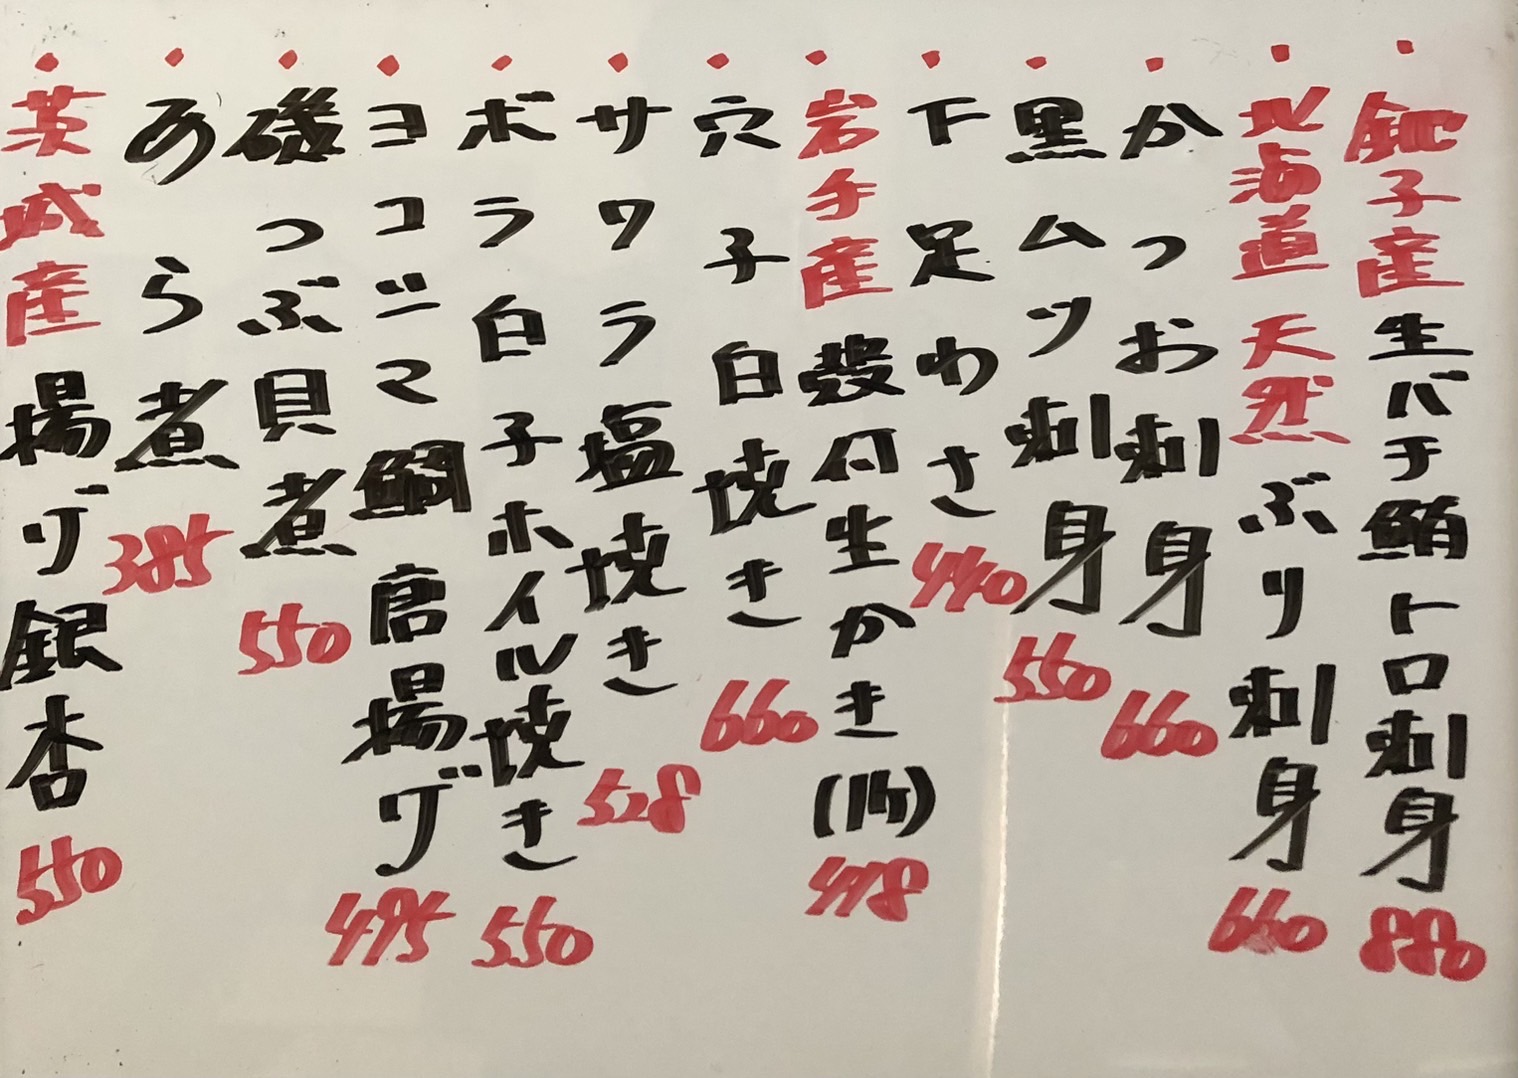 ・銚子産生バチ鮪トロ刺身 880
・北海道 天然ぶり刺身 660
・かつお刺身 660
・黒ムツ刺身 550
・下足わさ 440
・岩手産 殻付生かき(1ケ) 418
・穴子白焼き 660
・サワラ塩焼き 528
・ボラ白子ホイル焼き 550
・ヨコジマ鯛唐揚げ 495
・磯つぶ貝煮 550
・あら煮 385
・茨城産 揚げ銀杏 550